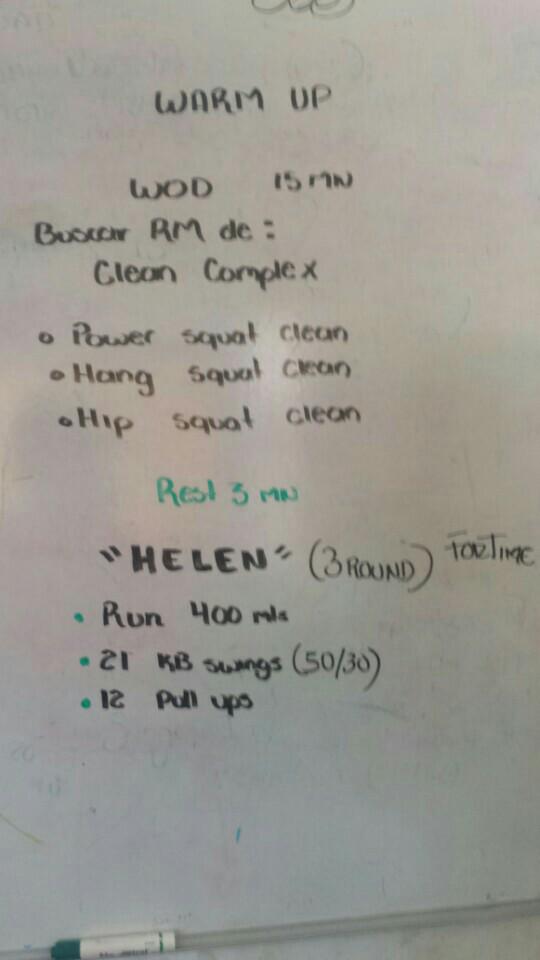 WARM UP
WOD 15 MN
Buscar RM de:
Clean Complex
Power squat clean
Hang squat clean
Hip squat clean
Rest 3 MN
"HELEN" (3 ROUND) FOR TIME
Run 400 mts
21 KB swings (50/30)
12 Pull ups